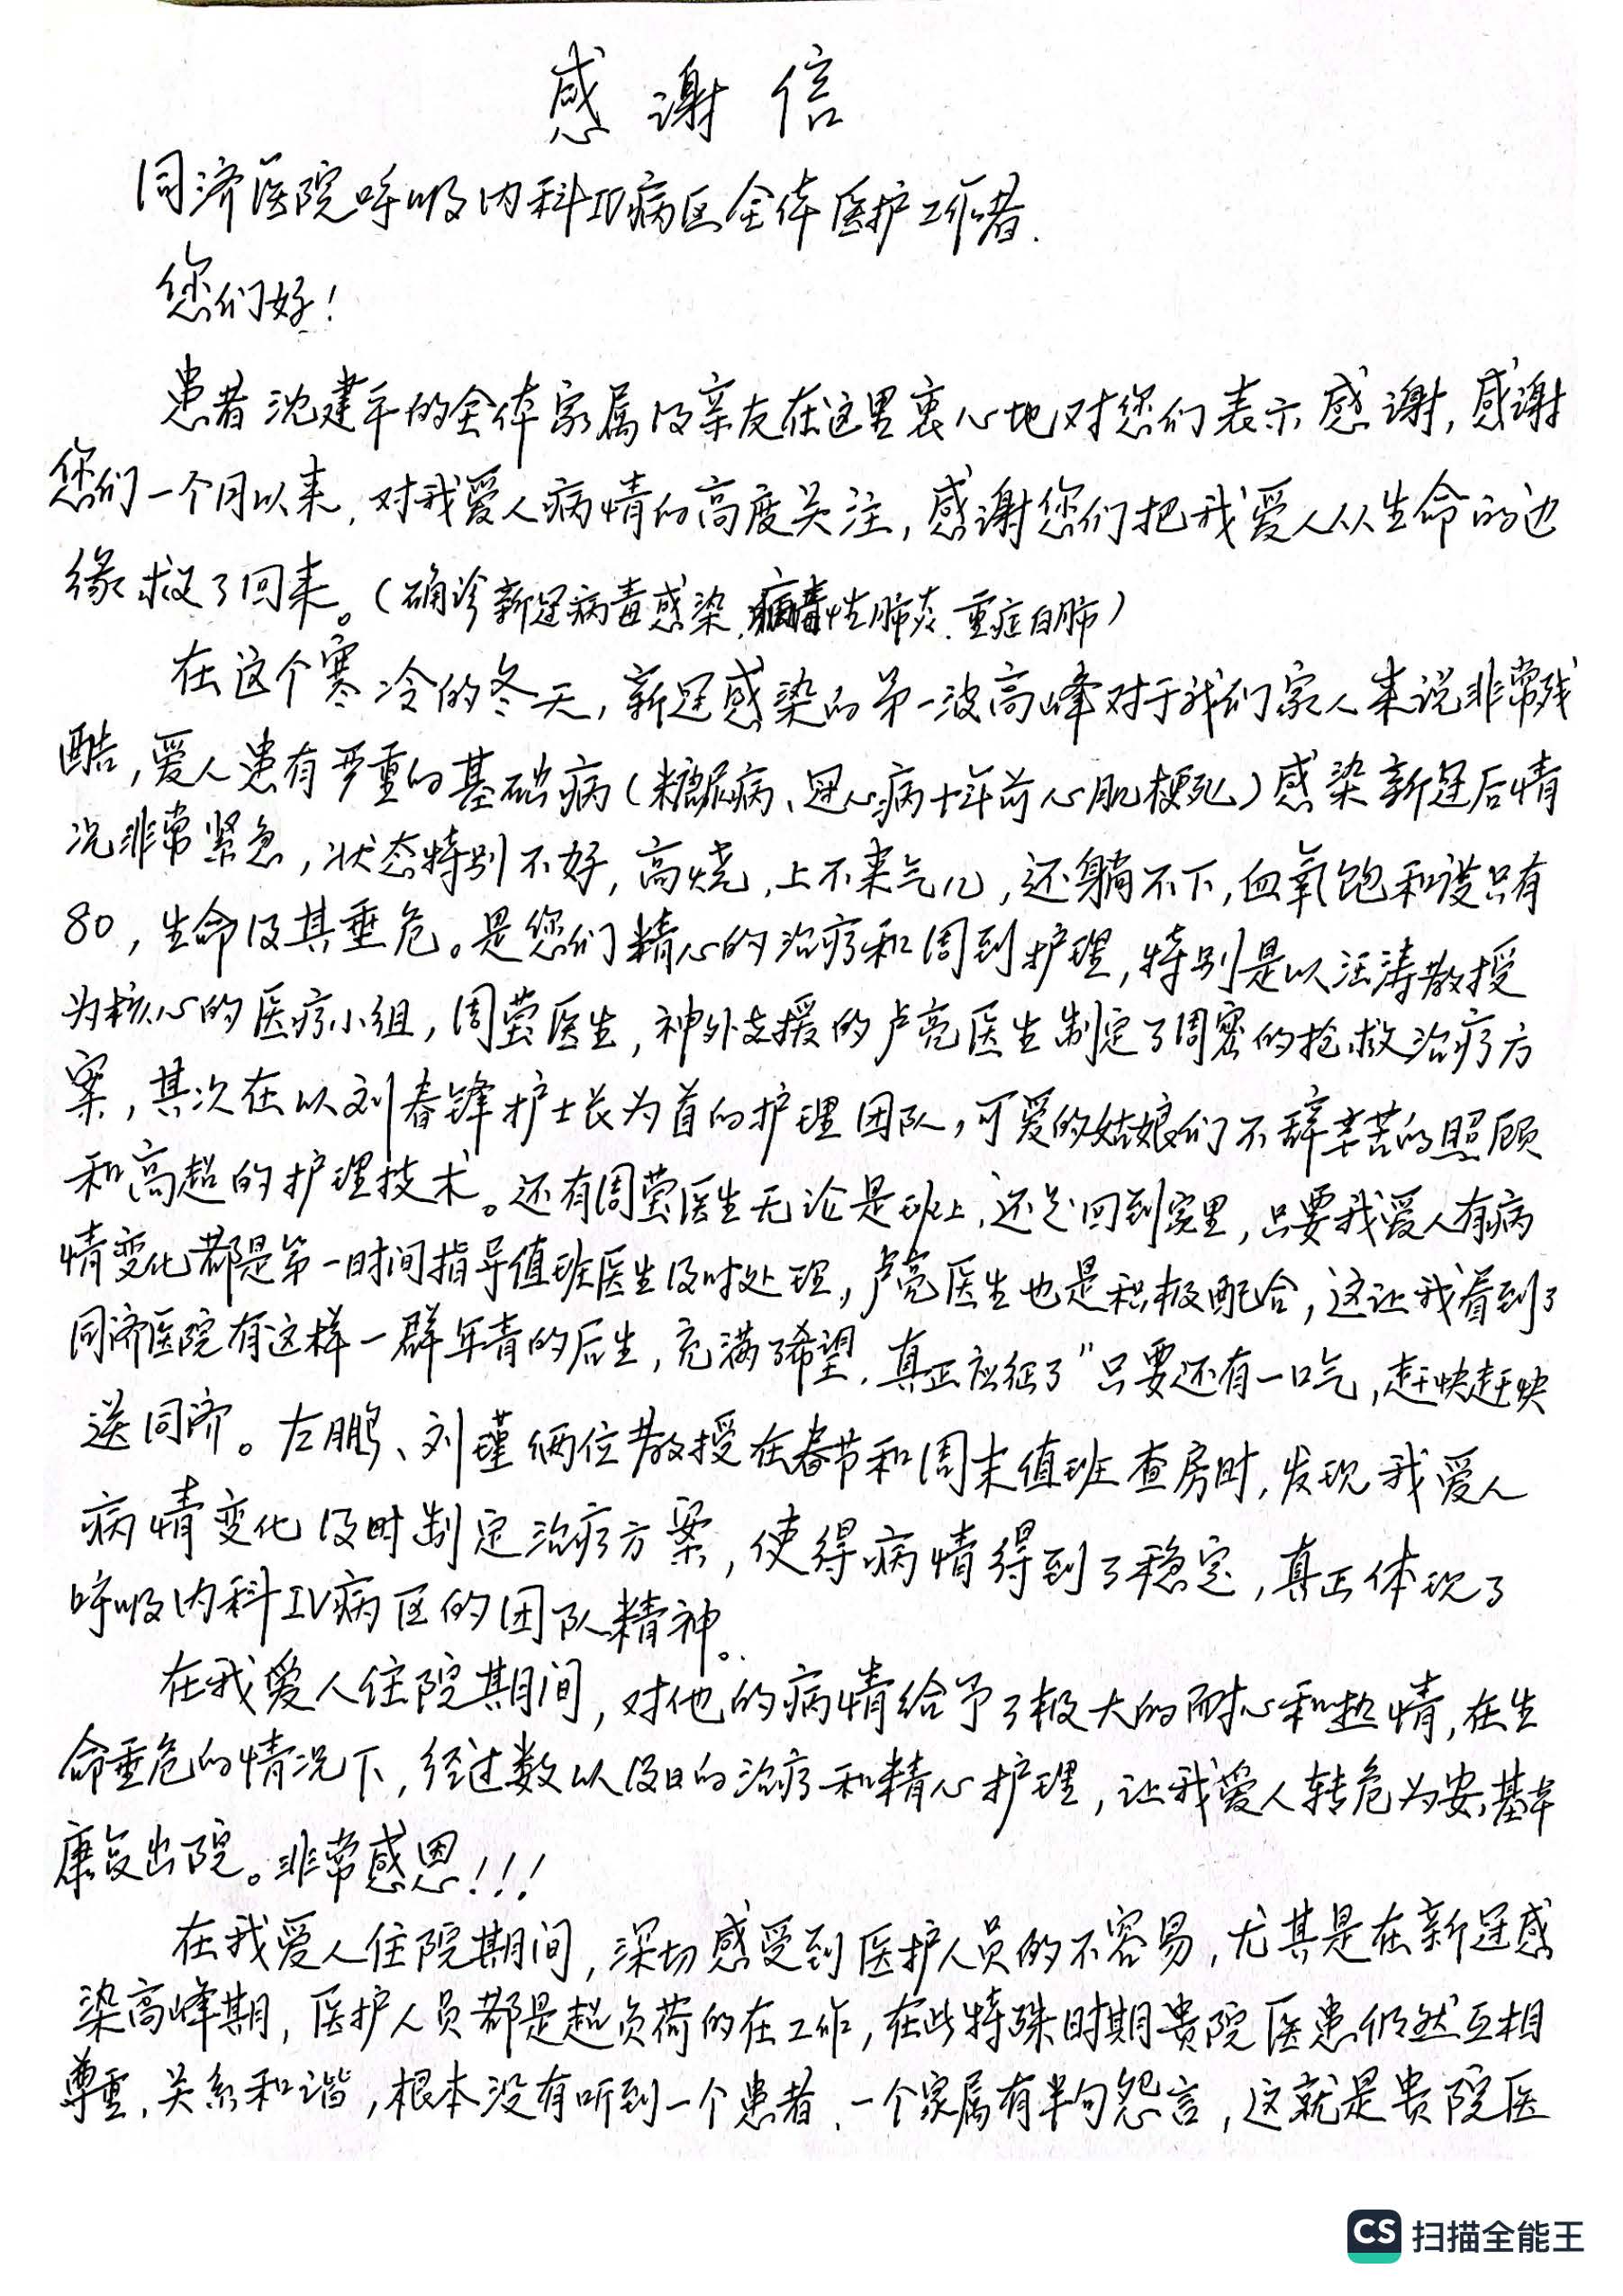 感谢信
同济医院呼吸内科IV病区全体医护工作者.
您们好!
患者沈建平的全体家属及亲友在这里衷心地对您们表示感谢,感谢
您们一个月以来,对我爱人病情的高度关注,感谢您们把我爱人从生命的边
缘救了回来。(确诊新冠病毒感染、病毒性肺炎、重症白肺)
在这个寒冷的冬天,新冠感染的第一波高峰对于我们家人来说非常残
酷,爱人患有严重的基础病(糖尿病、冠心病十年前心肌梗死)感染新冠后情
况非常紧急,状态特别不好,高烧,上不来气儿,还躺不下,血氧饱和度只有
80,生命及其垂危。是您们精心的治疗和周到护理,特别是以汪涛教授
为核心的医疗小组,周莹医生,神外支援的卢亮医生制定了周密的抢救治疗方
案,其次在以刘春锋护士长为首的护理团队,可爱的姑娘们不辞辛苦的照顾
和高超的护理技术。还有周莹医生无论是班上,还是回到家里,只要我爱人有病
情变化都是第一时间指导值班医生及时处理,卢亮医生也是积极配合,这让我看到了
同济医院有这样一群年青的后生,充满了希望,真正应征了"只要还有一口气,赶快赶快
送同济。左鹏、刘瑾俩位教授在春节和周末值班查房时,发现我爱人
病情变化及时制定治疗方案,使得病情得到了稳定,真正体现了
呼吸内科IV病区的团队精神。
在我爱人住院期间,对他的病情给予了极大的耐心和热情,在生
命垂危的情况下,经过数以及日的治疗和精心护理,让我爱人转危为安,基本
康复出院。非常感恩!!!
在我爱人住院期间,深切感受到医护人员的不容易,尤其是在新冠感
染高峰期,医护人员都是超负荷的在工作,在此特殊时期贵院医患仍然互相
尊重,关系和谐,根本没有听到一个患者、一个家属有半句怨言,这就是贵院医
CS 扫描全能王